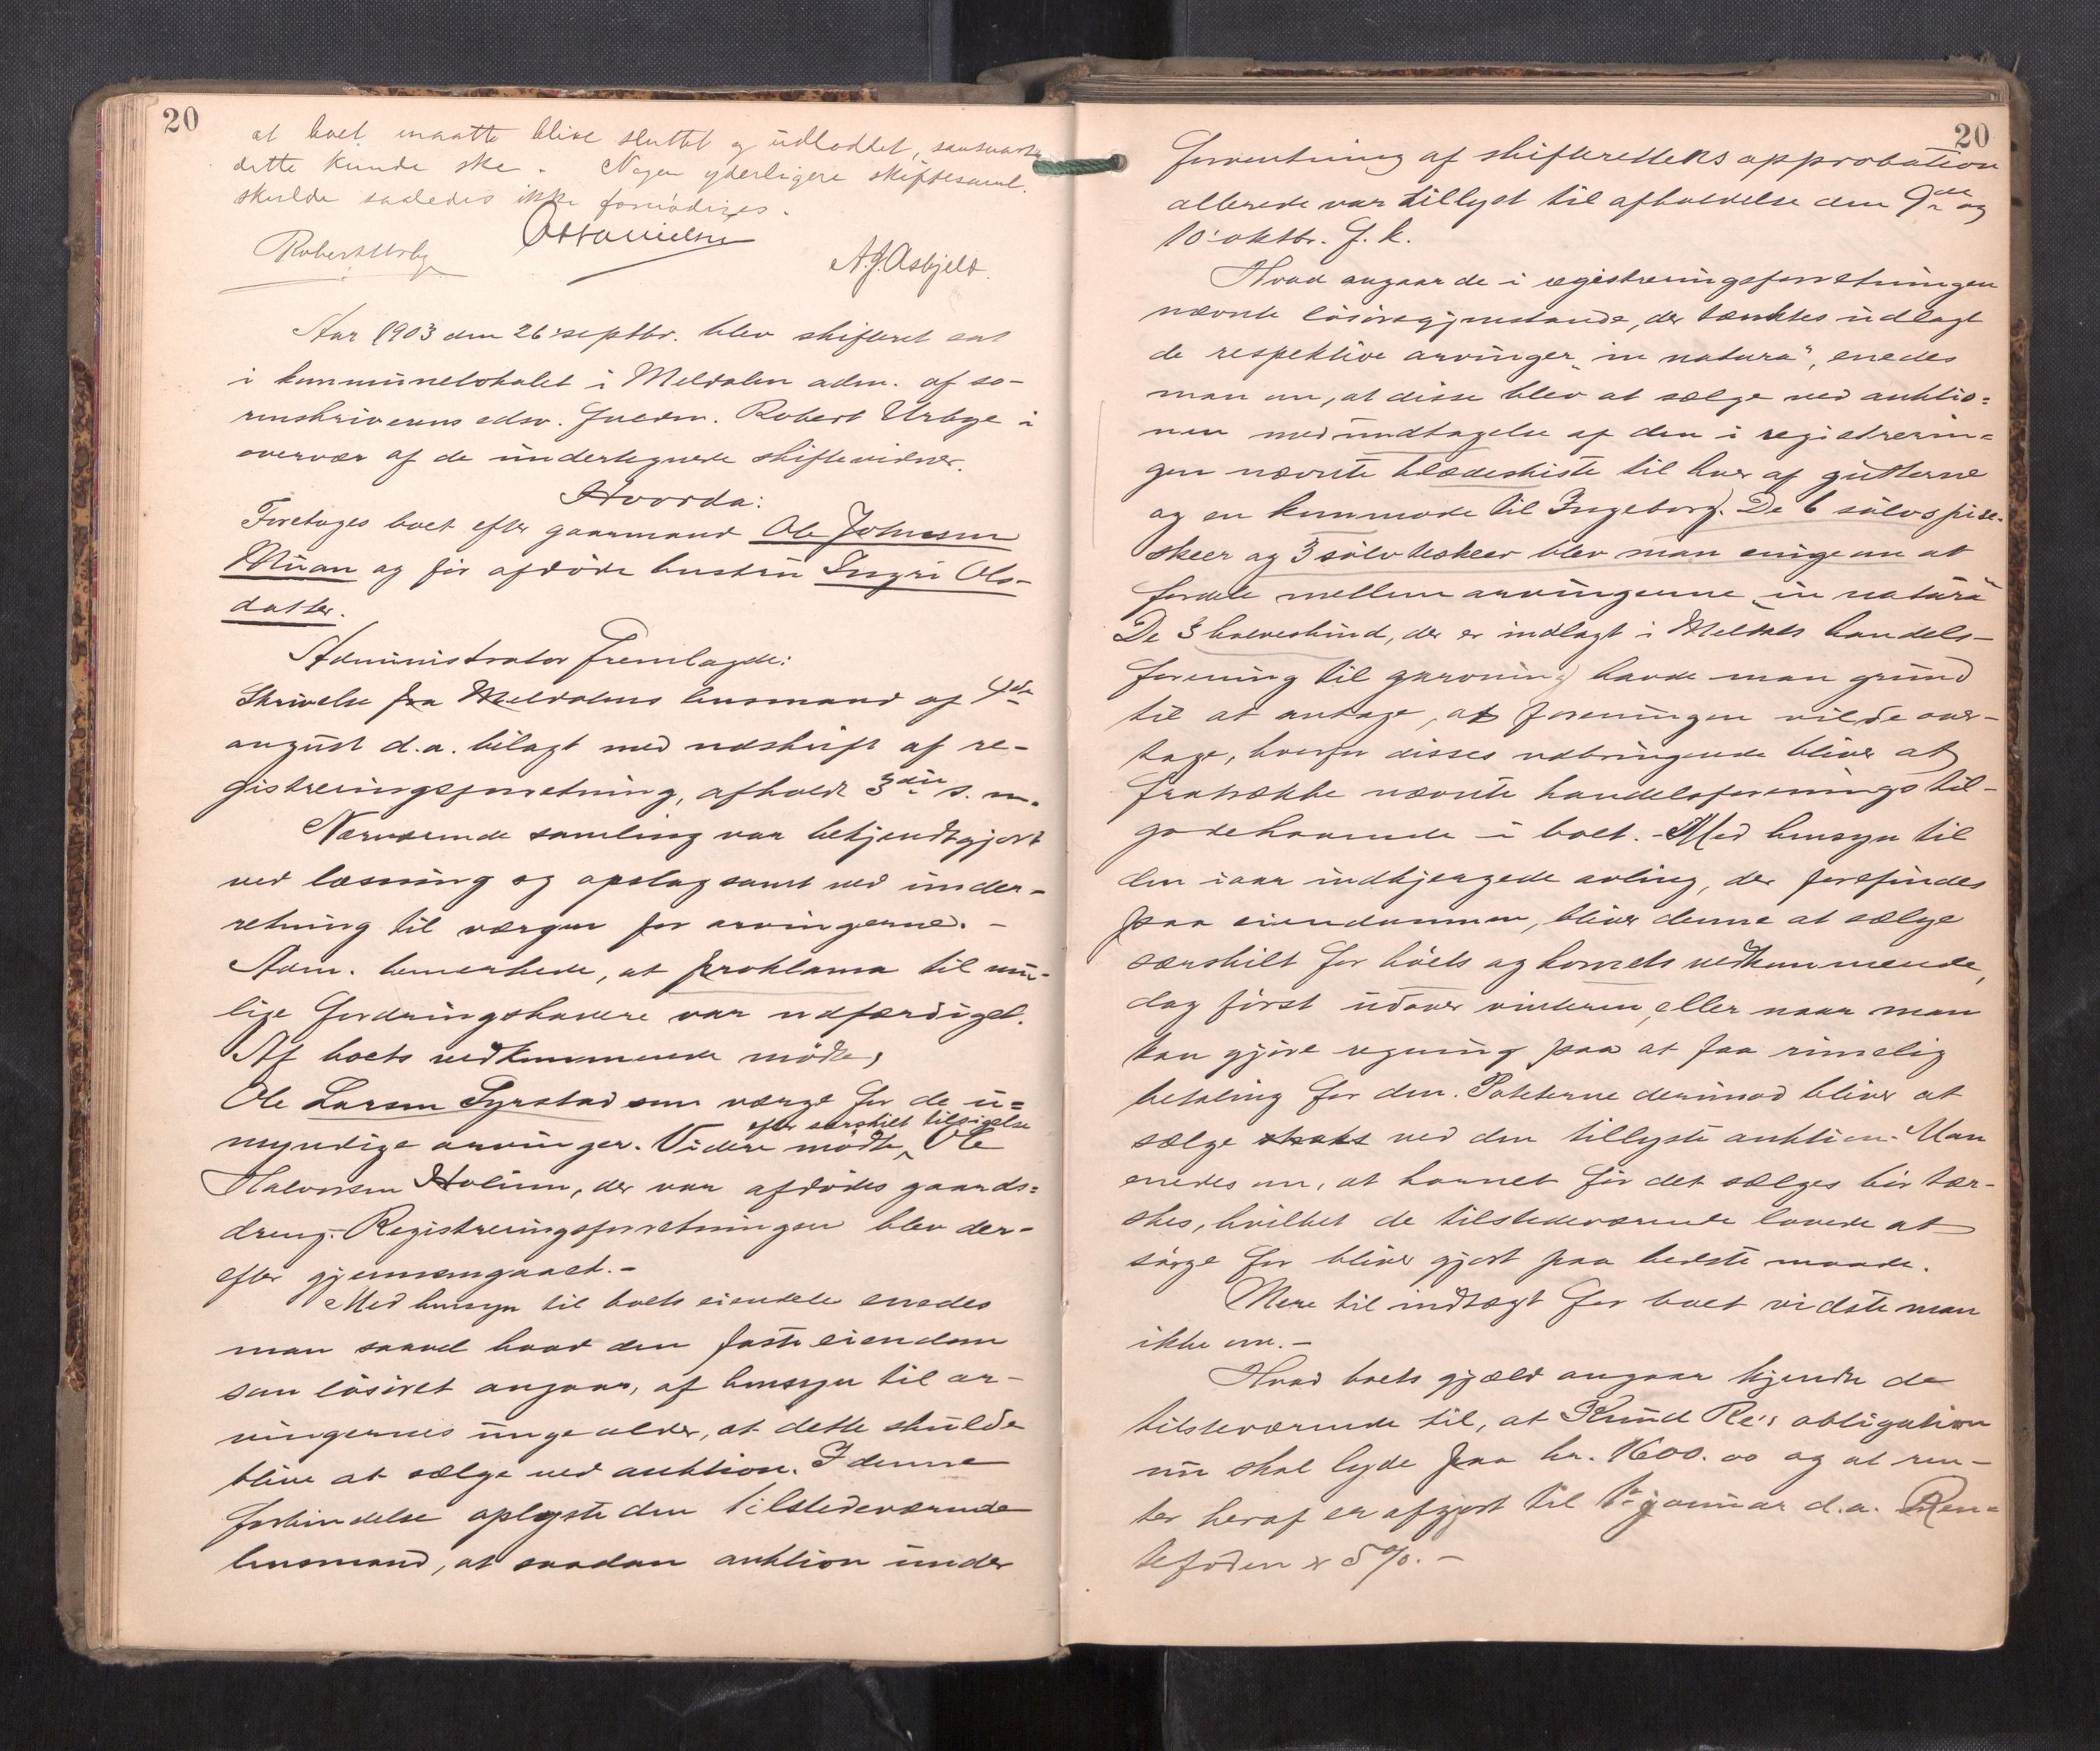 20
at boet maatte blive sluttet og udloddet, saasnart
dette kunde ske. Nogen yderligere skiftesaml.
skulde saaledes ikke fornødiges.
Otto Nielsen
Robert Urbye
A. J. Asbjeld.
Aar 1903 den 26' septbr. blev skifteret sat
i kommunelokalet i Meldalen adm. af so-
renskriverens edsv. fuldm. Robert Urbye i
overvær af de undertegnede skiftevidner.
Hvorda:
Foretoges boet efter gaarmand Ole Johnsen
Muan og før afdøde hustru Ingri Ols-
datter.
Administrator fremlagde:
Skrivelse fra Meldalens lensmand af 4de
august d.a. bilagt med udskrift af re-
gistreringsforretning, afholdt 3die s. m.
Nærværende samling var bekjendtgjort
ved læsning og opslag samt ved under-
retning til værgen for arvingerne. -
Adm. bemerkede, at proklama til mu-
lige fordringshavere var udfærdiget.
Af boets vedkommende mødte,
Ole Larsen Syrstad som værge for de u=
efter særskilt tilsigelse
myndige arvinger. Videre mødte, Ole
Halvorsen Holium, der var afdødes gaards=
dreng. Registreringsforretningen blev der-
efter gjennemgaaet. -
Med hensyn til boets eiendele enedes
man saavel hvad den faste eiendom
som løsøret angaar, af hensyn til ar-
vingernes unge alder, at dette skulde
blive at sælge ved auktion. I denne
forbindelse oplyste den tilstedeværende
lensmand, at saadan auktion under
20
forventning af skifterettens approbation
allerede var tillyst til afholdelse den 9de og
10' oktbr. f. k.
Hvad angaar de i registreringsforretningen
nævnte løsøregjenstande, der tænktes udlagt
de respektive arvinger "in natura", enedes
man om, at disse blev at sælge ved auktio=
nen med undtagelse af den i registrerin=
gen nævnte klædeskiste til hver af gutterne
og en kommode til Ingeborg. De 6 sølvspise-
skeer og 3 sølvteskeer blev man enige om at
fordele mellem arvingerne "in natura"
De 3 kalveskind, der er indlagt i Meldals handels-
forening til garvning, havde man grund
til at antage, at foreningen vilde over-
tage, hvorfor disses udbringende bliver at
fratrække nævnte handelsforenings til-
godehavende i boet. - Med hensyn til
den iaar indbjergede avling, der forefindes
paa eiendommen, bliver denne at sælge
særskilt for høets og kornets vedkommende,
dog først udover vinteren, eller naar man
kan gjøre regning paa at faa rimelig
betaling for den. Poteterne derimod bliver at
sælge straks ved den tillyste auktion. Man
enedes om, at kornet før det sælges bør tær-
skes, hvilket de tilstedeværende lovede at
sørge for bliver gjort paa bedste maade.
Mere til indtægt for boet vidste man
ikke om. -
Hvad boets gjæld angaar kjendte de
tilsteværende til, at Knud Re's obligation
nu skal lyde paa kr. 1600.00 og at ren-
ter heraf er afgjort til 1' januar d.a. Ren=
tefoden er 5%. -